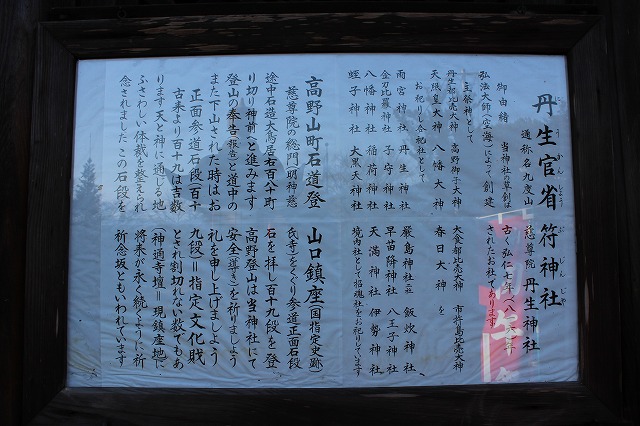 丹生官省符神社
通称名九度山 慈尊院 丹生神社
御由緒 当神社の草創は 古く弘仁七年(八一六)年
弘法大師(空海)によって創建 されたお社であります
主祭神として
丹生都比売大神 高野御子大神 大食都比売大神 市杵島比売大神
天照皇大神 八幡大神 春日大神 を
お祀りし合祀社として
雨宮神社 丹生神社 厳島神社 飯炊神社
金刀比羅神社 子守神社 早苗降神社 八王子神社
八幡神社 稲荷神社 天満神社 伊勢神社
蛭子神社 大黒天神社 境内社として招魂社をお祀りしています
高野山町石道登山口鎮座(国指定史跡)
慈尊院の総門(明神慈氏寺)をくぐり参道正面石段
途中石造大鳥居右百八十町石を拝し百十九段を登
り切り神前へと進みます 高野登山は当神社にて
登山の奉告(報告)と道中の安全(導き)を祈りましょう
また下山された時はお礼を申し上げましょう
正面参道石段(百十九段)=指定文化財
古来より百十九は吉数とされ割切れない数でもあ
ります天と神に通じる地(神通寺壇=現鎮座地)に
ふさわしい体裁を整えられ将来が永く続くように祈
念されましたこの石段を祈念坂ともいわれています